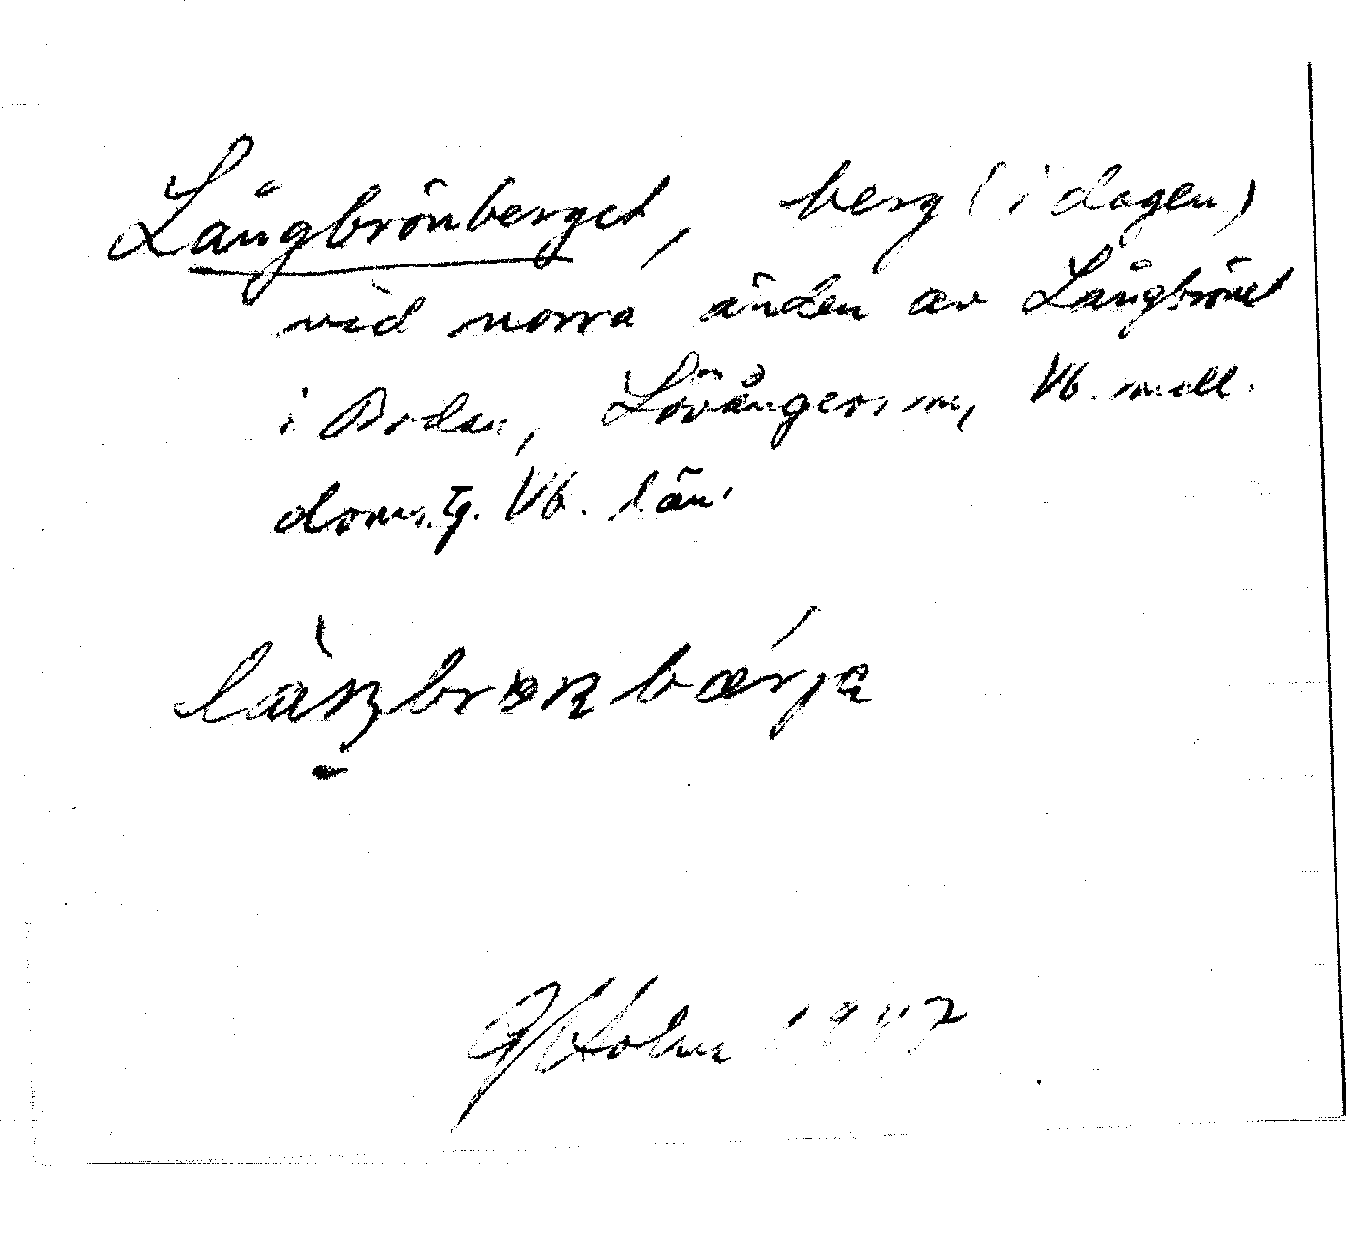 Långbrönberget, berg (i dagen)
vid norra änden av Långbrönet
i Bodan, Lövångers sn, Vb. mell.
doms.tg. Vb. län.
G Holm 1947